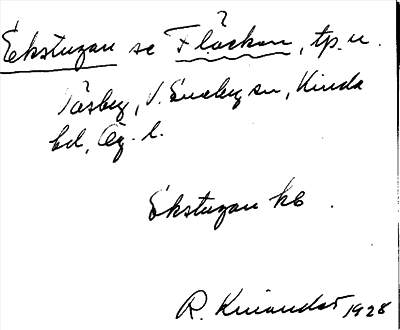 Ekstugan se Fläckan, tp. u.
Råsby, V. Eneby sn, Kinda
hd, Ög. l.
Ekstugan kb.
R. Kinander 1928